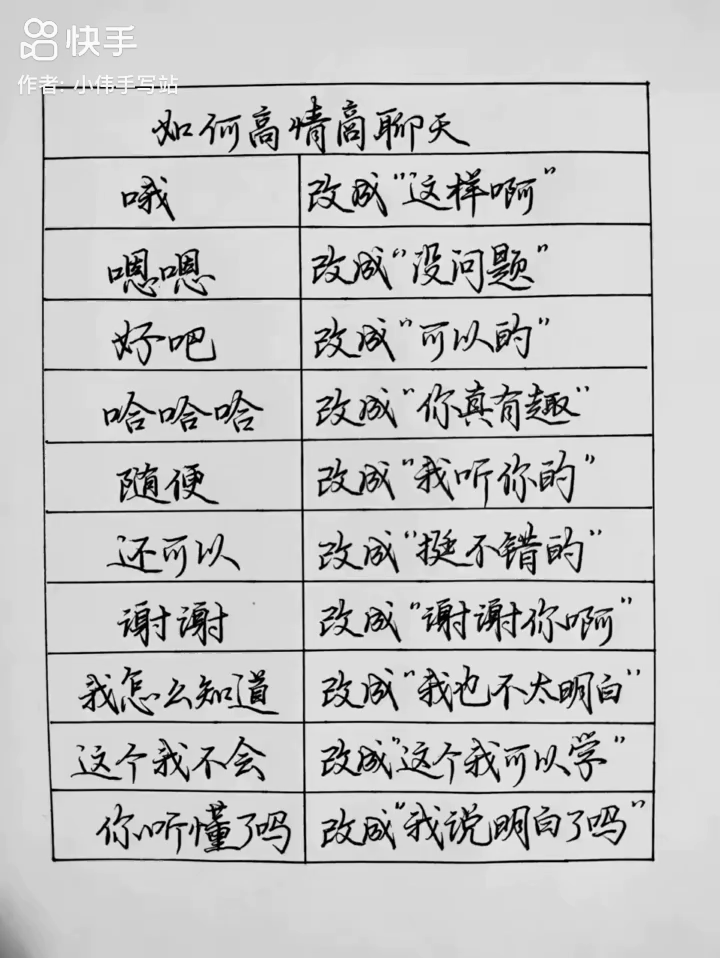 快手
作者: 小伟手写站
如何高情高聊天
哦 改成"这样啊"
嗯嗯 改成"没问题"
好吧 改成"可以的"
哈哈哈 改成"你真有趣"
随便 改成"我听你的"
还可以 改成"挺不错的"
谢谢 改成"谢谢你啊"
我怎么知道 改成"我也不太明白"
这个我不会 改成"这个我可以学"
你听懂了吗 改成"我说明白了吗"